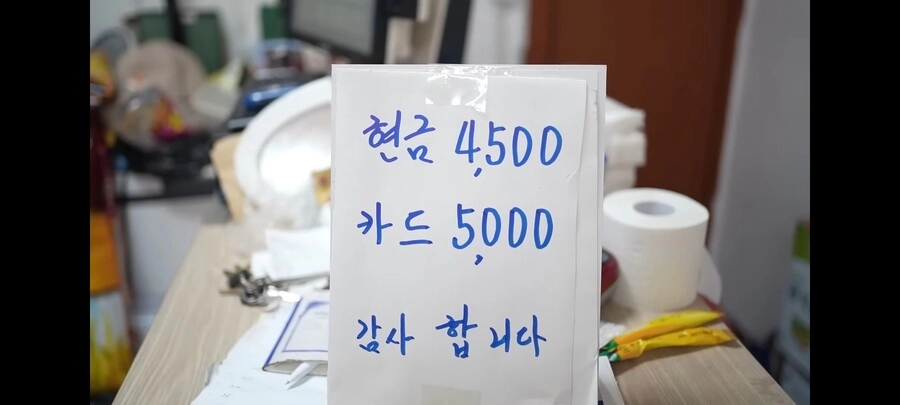 현금 4,500
카드 5,000
감사 합니다